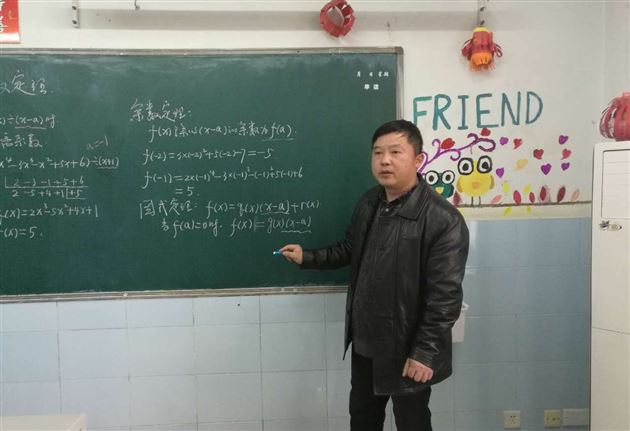 定理.
÷(x-a)时
a=-1
-3x³-x²+5x+6)÷(x+1)
2 -3 -1 +5 +6
2 -5 +4 +1 +5
(x)=2x³-5x²+4x+1
(x)=5.
余数定理:
f(x)除以(x-a)的余数为f(a).
f(-2)=3×(-2)²+5(-2)-7=-5
f(-1)=2×(-1)⁴-3×(-1)³-(-1)²+5(-1)+6
=5.
因式定理: f(x)=q(x)(x-a)+r(x)
当f(a)=0时, f(x)=q(x)(x-a)
月 日 星期
FRIEND